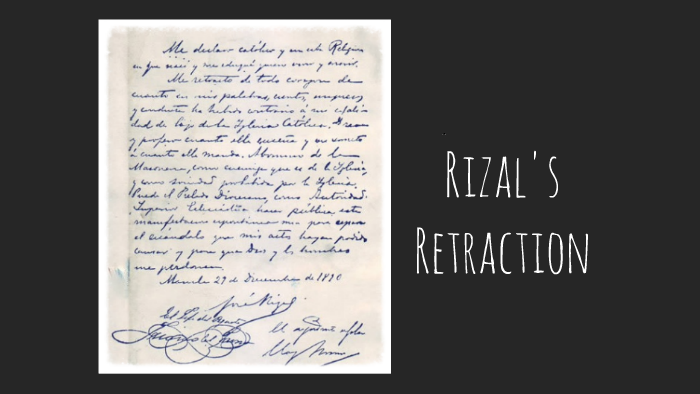 Me declaro católico y en esta Religion
en que nací y me eduqué quiero vivir y morir.
Me retracto de todo corazon de
cuanto en mis palabras, escritos, impresos
y conducta ha habido contrario á mi cuali-
dad de hijo de la Iglesia Católica. Creo
y profeso cuanto ella enseña y me someto
á cuanto ella manda. Abomino de la
Masoneria, como enemiga que es de la Iglesia,
y como sociedad prohibida por la Iglesia.
Puede el Prelado Diocesano, como Autoridad
Superior Eclesiástica hacer pública esta
manifestacion espontanea mia para reparar
el escándalo que mis actos hayan podido
causar y para que Dios y los hombres
me perdonen.
Manila 29 de Diciembre de 1890
José Rizal
El Jefe del Piquete
El ayudante de Plaza
Juan del Fresno
Eloy Moure
Rizal's
Retraction